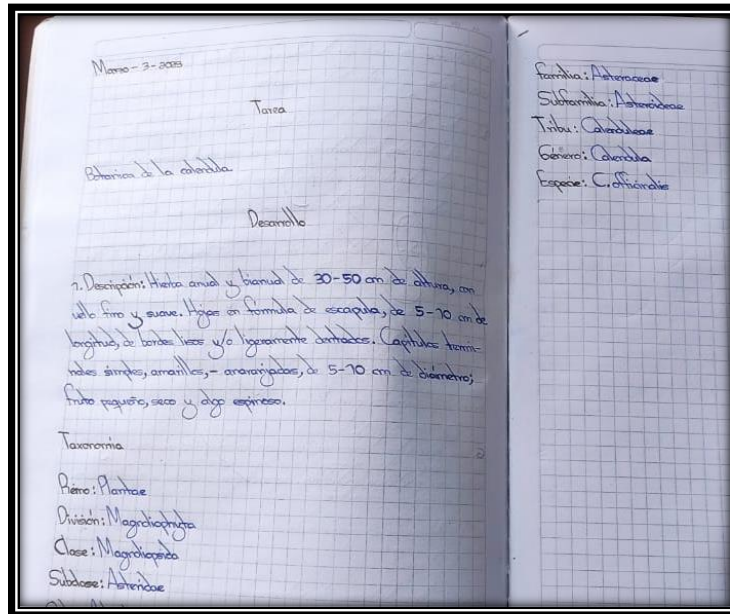 Marzo-3-2023
Tarea
Botanica de la calendula
Desarrollo
1. Descripción: Hierba anual y bianual de 30-50 cm de altura, con
vello fino y suave. Hojas en fórmula de escapula, de 5-10 cm de
longitud, de bordes lisos y/o ligeramente dentados. Capítulos termi-
nales simples, amarillos,- anaranjados, de 5-10 cm de diámetro;
fruto pequeño, seco y algo espinoso.
Taxonomia
Reino: Plantae
División: Magnoliophyta
Clase: Magnoliopsida
Subclase: Asteridae
Familia: Asteraceae
Subfamilia: Asteroideae
Tribu: Calenduleae
Género: Calendula
Especie: C. officinalis